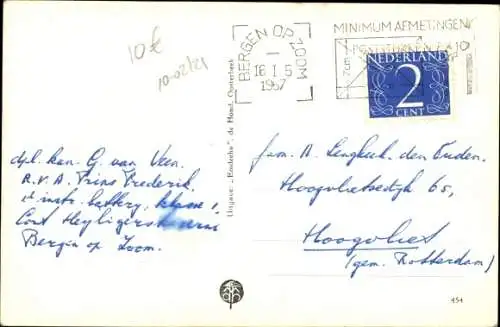 10 €
10-02/21
BERGEN OP ZOOM
16 I 5
1957
MINIMUM AFMETINGEN
POSTSTUKKEN 7 x 10
NEDERLAND
2
CENT
Uitgave: „Eindeka", de Hond, Oosterbeek
dpl. kan. G. van Veen.
R.V.A. Prins Frederik.
instr. battery, klasse 1,
Cort Heyligerskazerne
Bergen op Zoom.
fam. A. Lengkeek. den Ouden.
Hoogvlietsedijk 65,
Hoogvliet
(gem. Rotterdam)
454